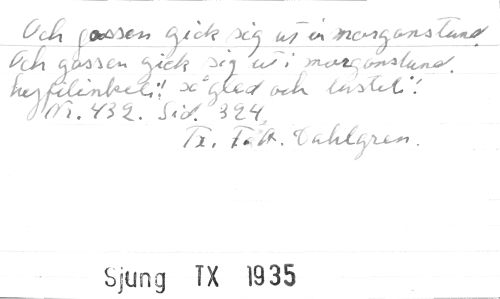 Och gossen gick sig ut i morgonstund
Och gossen gick sig ut i morgonstund.
hejfilinkeli!! x glad och lusteli!!
Nr. 432. Sid. 324.
Tr. Fält. Dahlgren.
Sjung TX 1935